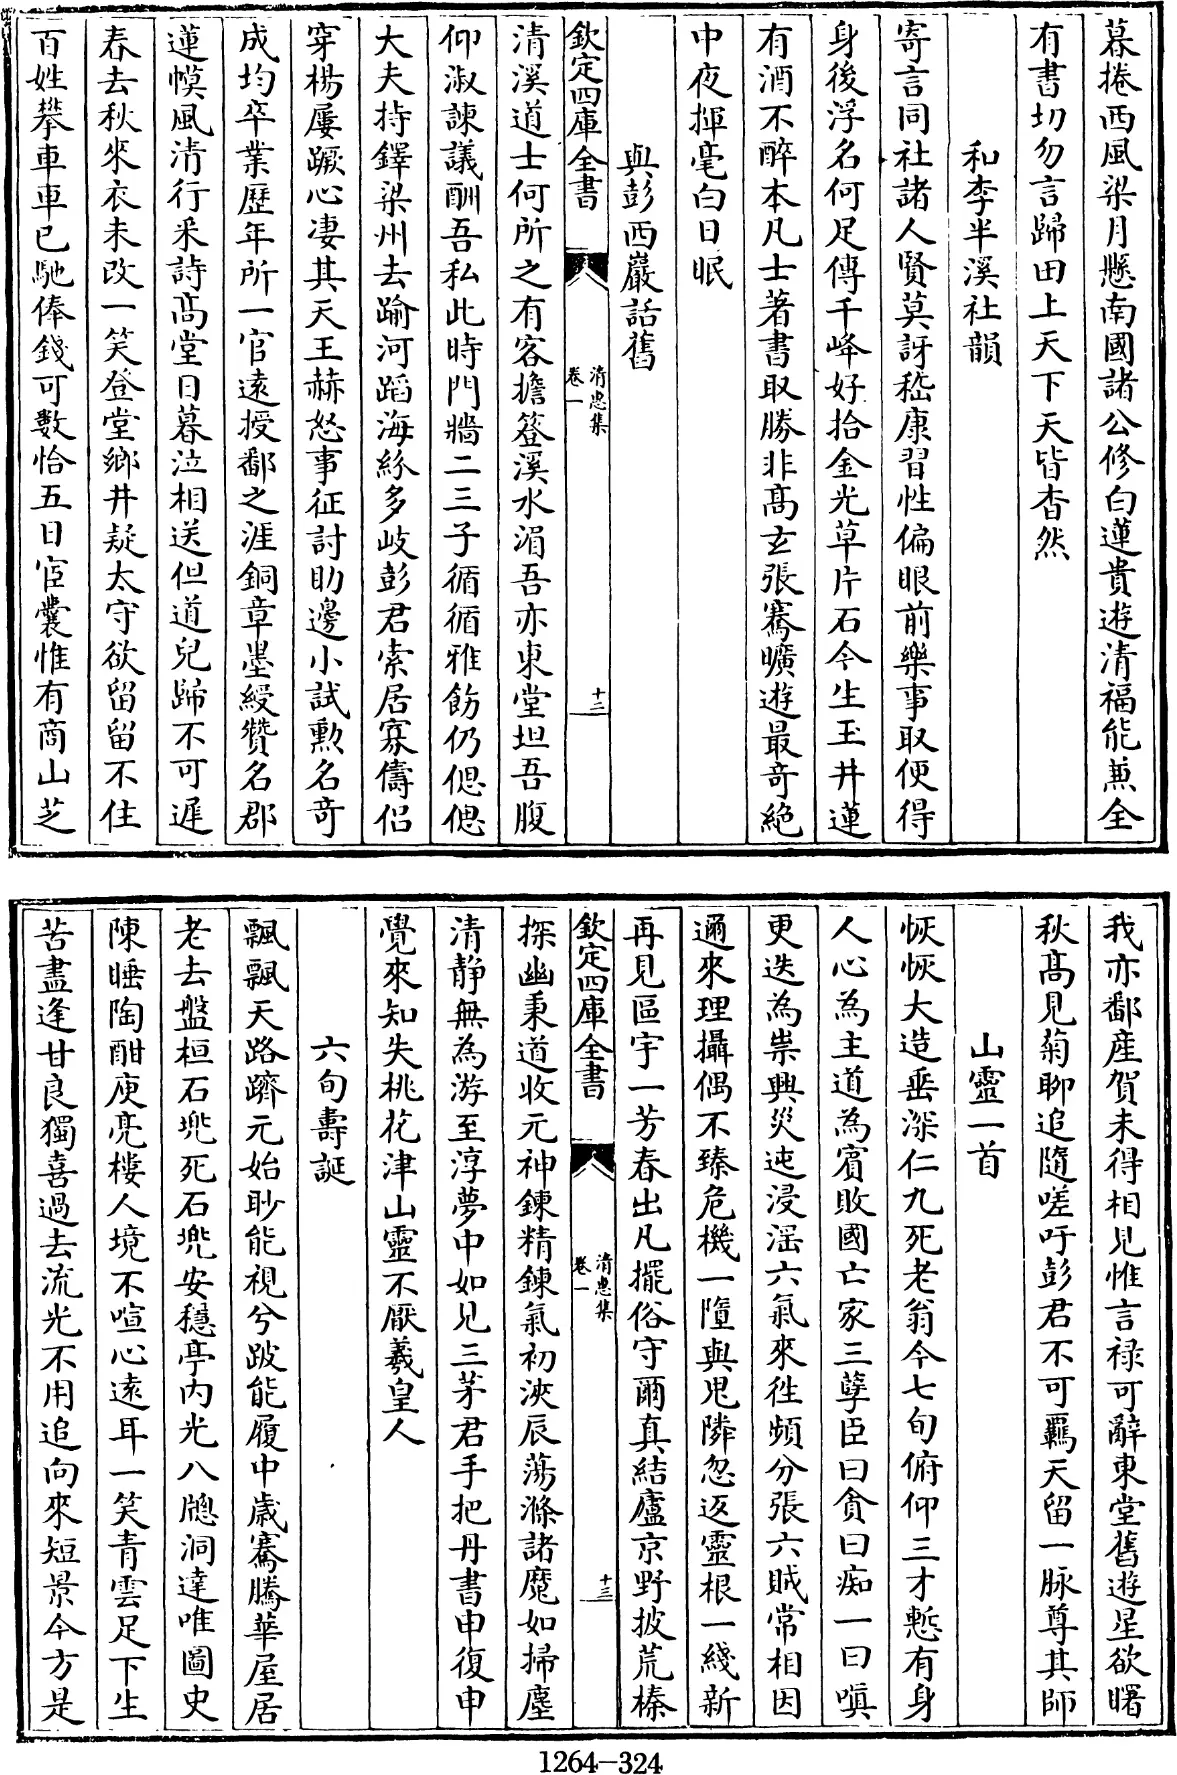 暮捲西風梁月懸南國諸公修白蓮貴遊清福能兼全
有書切勿言歸田上天下天皆杳然
和李半溪社韻
寄言同社諸人賢莫訝嵇康習性偏眼前樂事取便得
身後浮名何足傳千峰好拾金光草片石今生玉井蓮
有酒不醉本凡士著書取勝非高玄張騫曠遊最奇絶
中夜揮毫白日眠
與彭西巖話舊
欽定四庫全書
清惠集
卷一
十二
清溪道士何所之有客擔簦溪水湄吾亦東堂坦吾腹
仰淑諫議酬吾私此時門牆二三子循循雅飭仍偲偲
大夫持鐸梁州去踰河蹈海紛多岐彭君索居寡儔侣
穿楊屢蹶心淒其天王赫怒事征討助邊小試勲名奇
成均卒業歷年所一官遠授鄱之涯銅章墨綬贊名郡
蓮幙風清行采詩高堂日暮泣相送但道兒歸不可遲
春去秋來衣未改一笑登堂鄉井疑太守欲留留不住
百姓攀車車已馳俸錢可數恰五日宦囊惟有商山芝
我亦鄱産賀未得相見惟言禄可辭東堂舊遊星欲曙
秋高見菊聊追隨嗟吁彭君不可羈天留一脉尊其師
山靈一首
恢恢大造垂深仁九死老翁今七旬俯仰三才慙有身
人心為主道為賓敗國亡家三孽臣曰貪曰痴一曰嗔
更迭為祟興災迍浸淫六氣來徃頻分張六賊常相因
邇來理攝偶不臻危機一墮與鬼隣忽返靈根一綫新
再見區宇一芳春出凡擺俗守爾真結廬京野披荒榛
欽定四庫全書
清惠集
卷一
十三
探幽秉道收元神鍊精鍊氣初浹辰蕩滌諸魔如掃塵
清静無為游至淳夢中如見三茅君手把丹書申復申
覺來知失桃花津山靈不厭羲皇人
六旬壽誕
飄飄天路躋元始眇能視兮跛能履中歲騫騰華屋居
老去盤桓石兠死石兠安穩亭内光八牕洞達唯圖史
陳睡陶酣庾亮樓人境不喧心遠耳一笑青雲足下生
苦盡逢甘良獨喜過去流光不用追向來短景今方是
1264-324